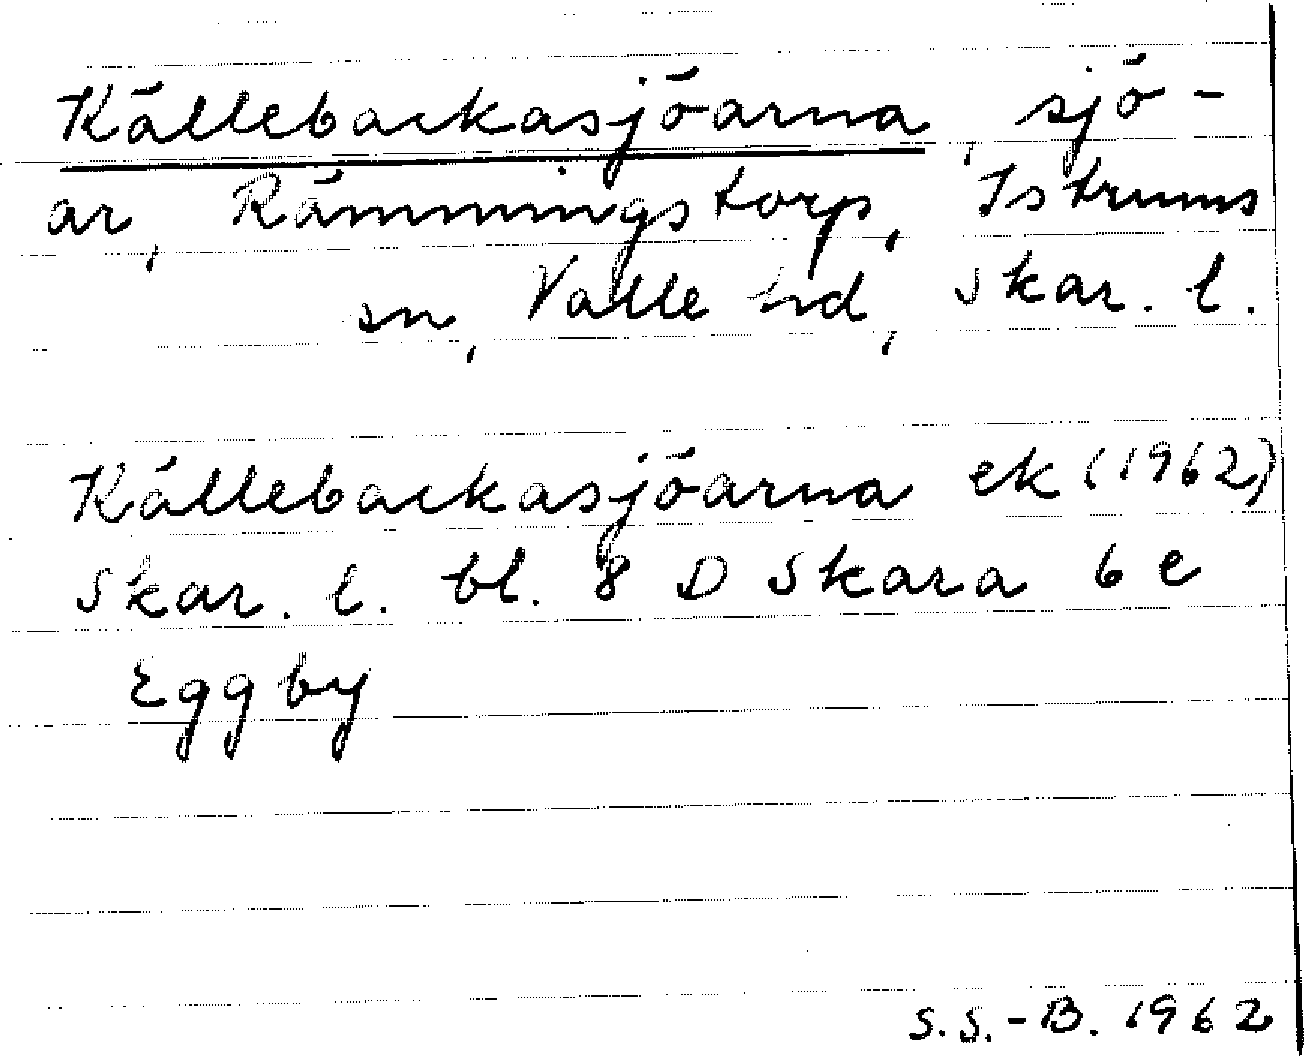 Källebackasjöarna, sjö-
ar, Rämmingstorp, Istrums
sn, Valle hd, Skar. l.
Källebackasjöarna ek (1962)
Skar. l. bl. 8 D Skara 6 e
Eggby
S.S.-B. 1962